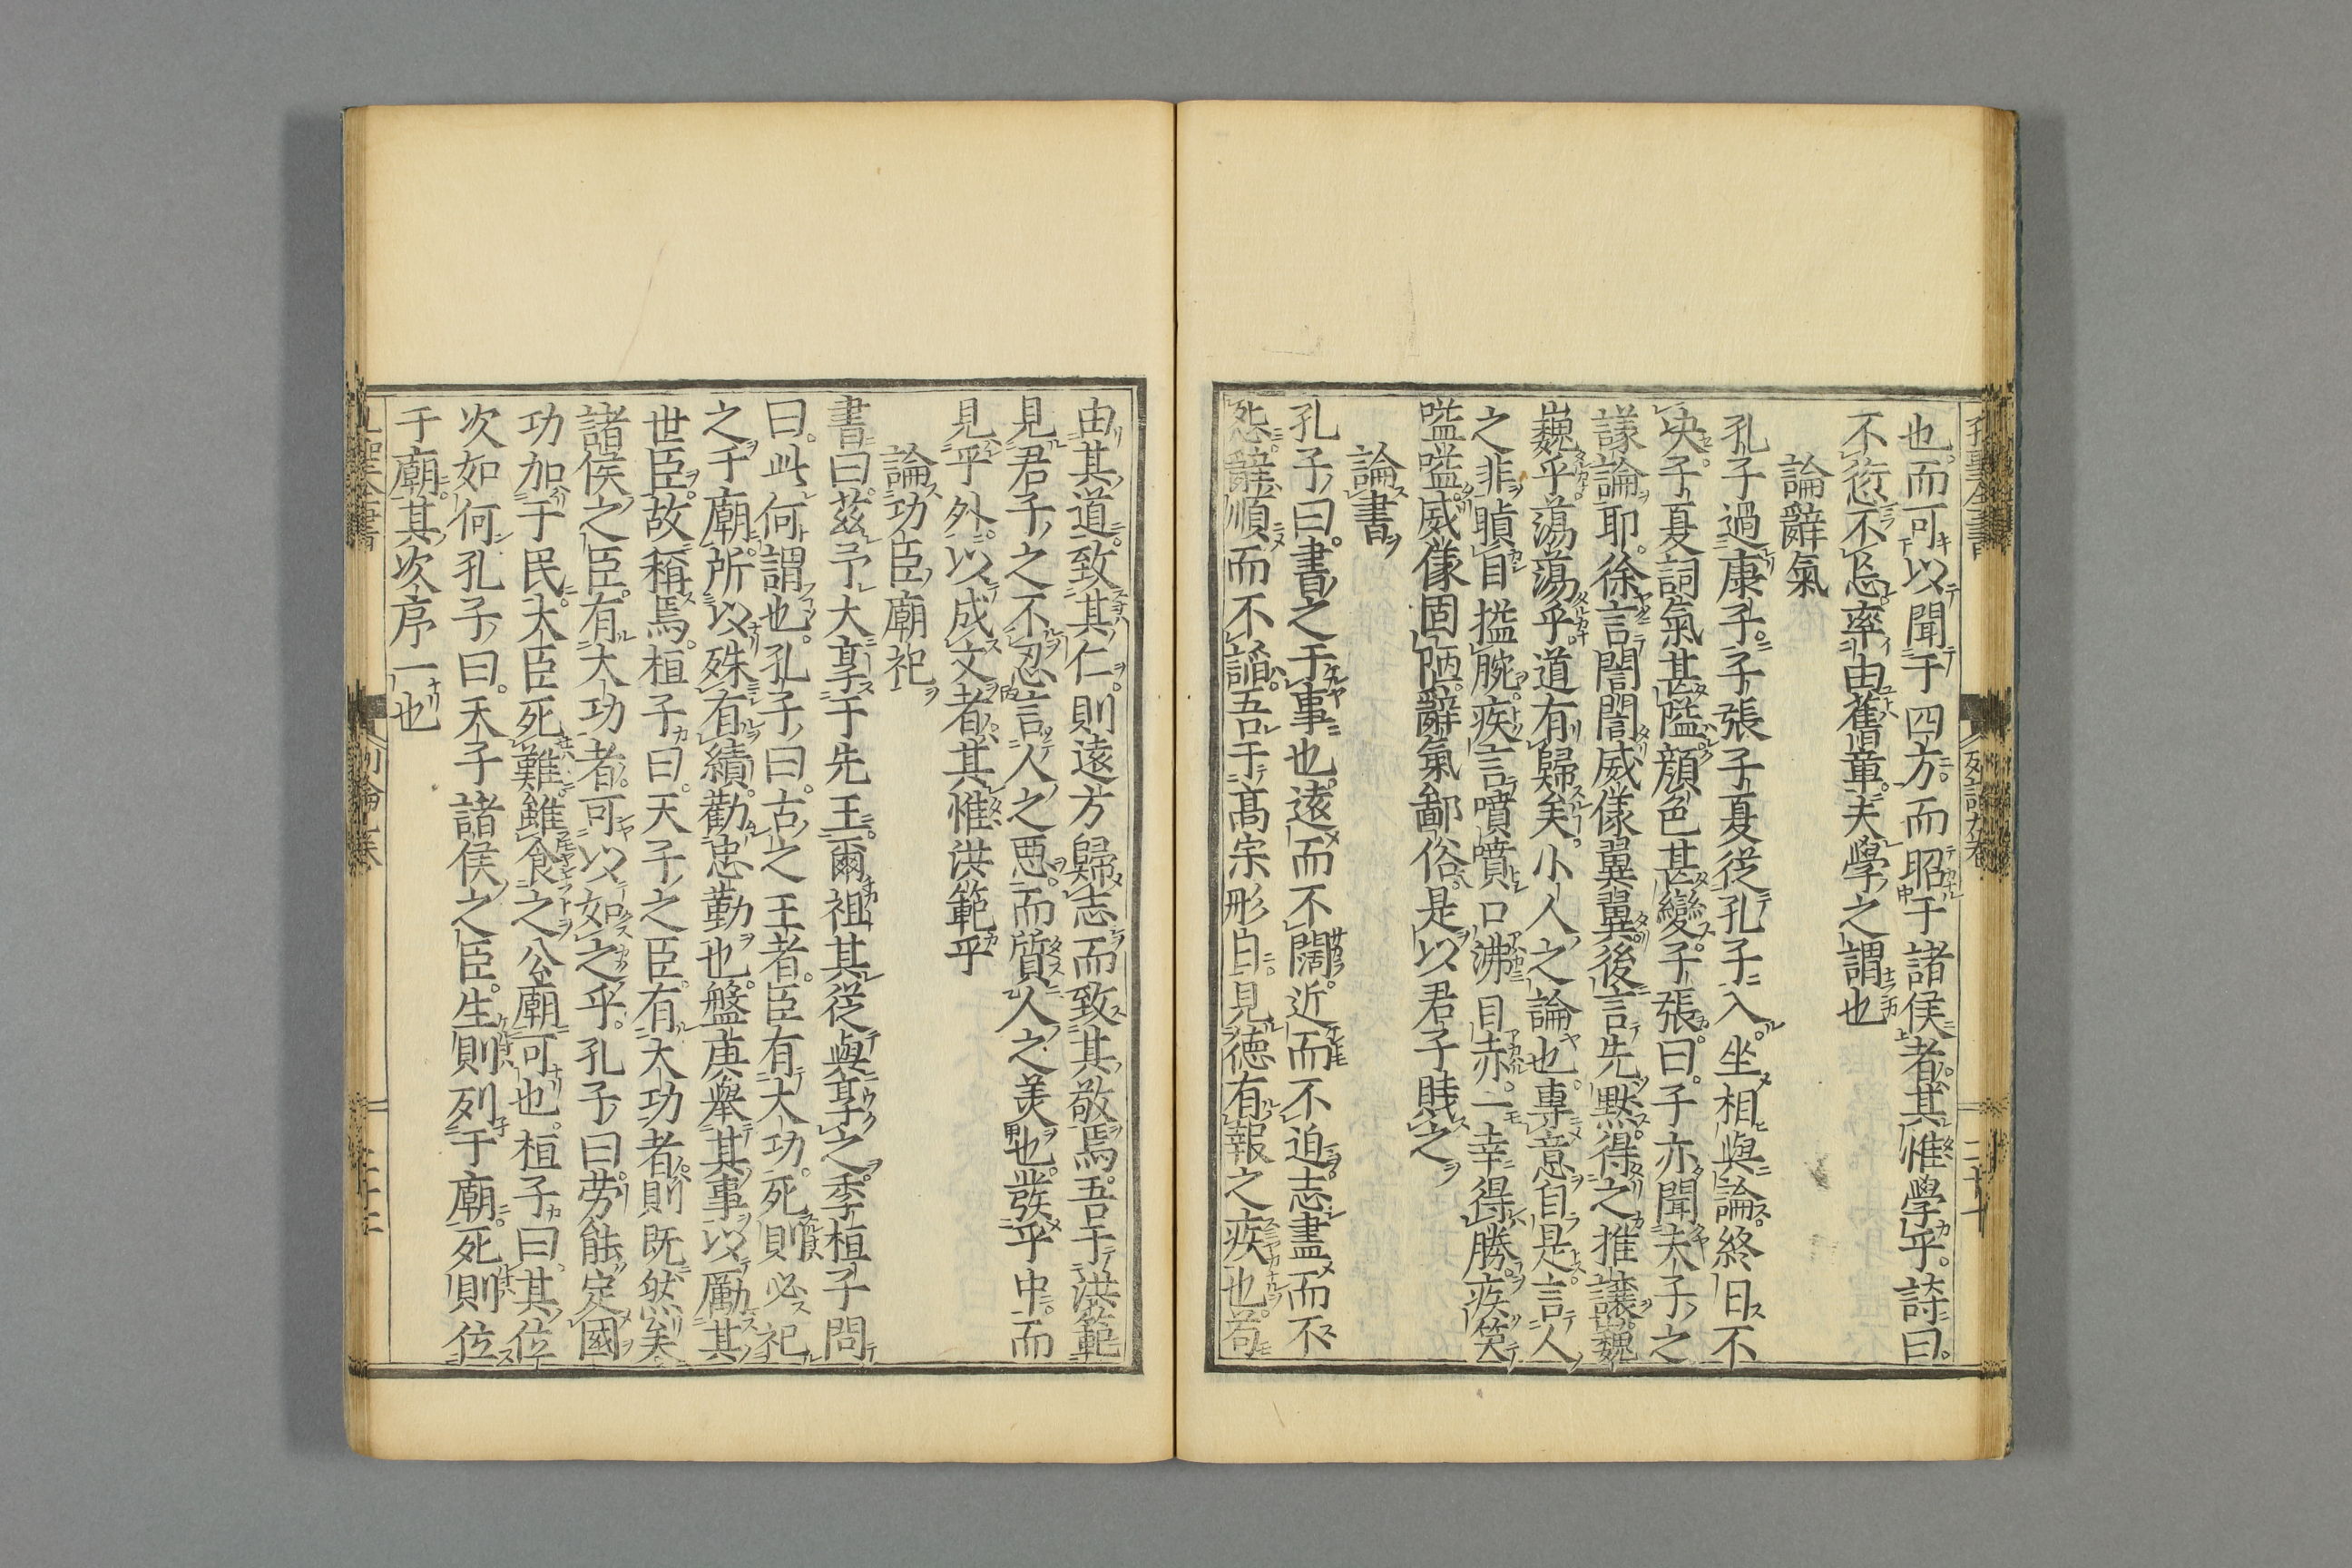 也而可以聞于四方而昭于諸侯者其惟學乎詩曰
不愆不忘率由舊章夫學之謂也
論辭氣
孔子過康子子張子夏從孔子入坐相與論終日不
決子夏詞氣甚隘顔色甚變子張曰子亦聞夫子之
議論耶徐言誾誾威儀翼翼後言先黙得之推讓巍
巍乎蕩蕩乎道有歸矣小人之論也專意自是言人
之非瞋目搤腕疾言噴噴口沸目赤一幸得勝疾笑
嗌嗌威儀固陋辭氣鄙俗是以君子賤之
論書
孔子曰書之于事也遠而不闊近而不迫志盡而不
怨辭順而不諂吾于髙宗肜日見德有報之疾也苟
由其道致其仁則遠方歸志而致其敬焉吾于洪範
見君子之不忍言人之惡而質人之美也發乎中而
見乎外以成文者其惟洪範乎
論功臣廟祀
書曰茲予大享于先王爾祖其從與享之季桓子問
曰此何謂也孔子曰古之王者臣有大功死則必祀
之于廟所以殊有績勸忠勤也盤庚舉其事以厲其
世臣故稱焉桓子曰天子之臣有大功者則既然矣
諸侯之臣有大功者可以如之乎孔子曰勞能定國
功加于民大臣死難雖食之公廟可也桓子曰其位
次如何孔子曰天子諸侯之臣生則列于廟死則位
于廟其次序一也